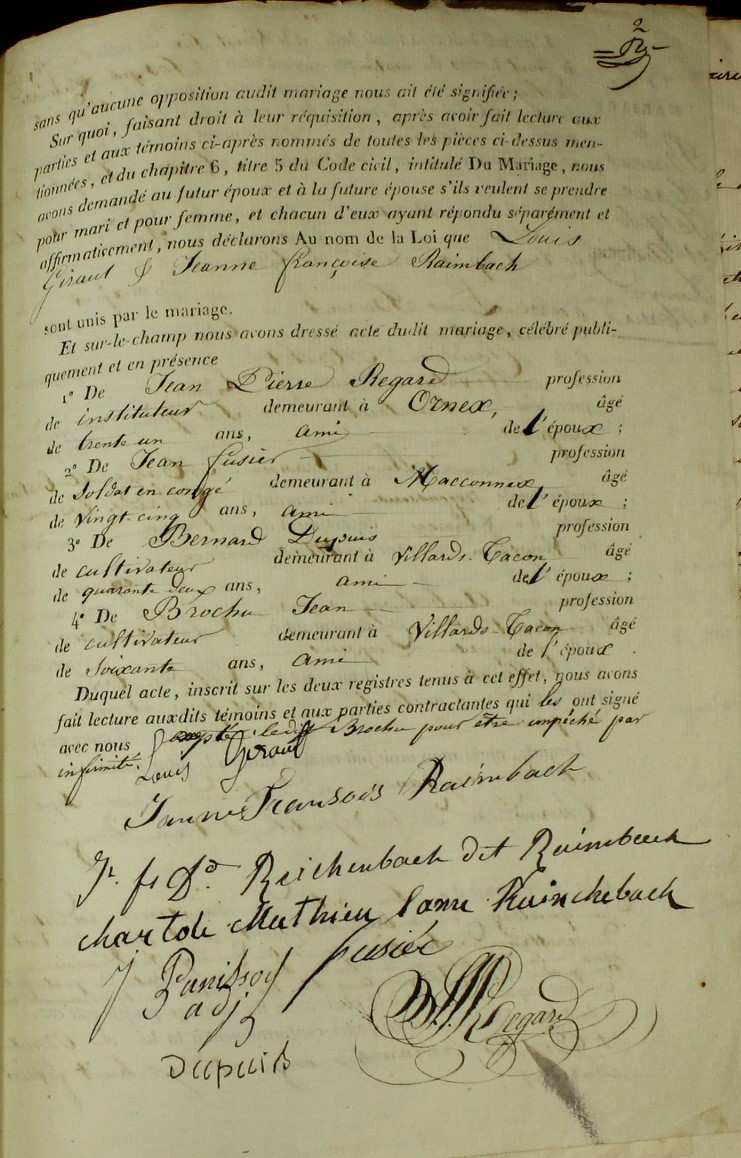 2
sans qu'aucune opposition audit mariage nous ait été signifiée;
Sur quoi, faisant droit à leur réquisition, après avoir fait lecture aux
parties et aux témoins ci-après nommés de toutes les pièces ci-dessus men-
tionnées, et du chapitre 6, titre 5 du Code civil, intitulé Du Mariage, nous
avons demandé au futur époux et à la future épouse s'ils veulent se prendre
pour mari et pour femme, et chacun d'eux ayant répondu séparément et
affirmativement, nous déclarons Au nom de la Loi que Louis
Giraud & Jeanne françoise Raimbach
sont unis par le mariage.
Et sur-le-champ nous avons dressé acte dudit mariage, célébré publi-
quement et en présence
1º De Jean Pierre Regard profession
de instituteur demeurant à Ornex, âgé
de trente un ans, ami de l'époux;
2º De Jean fusier profession
de Soldat en congé demeurant à Macconnex âgé
de vingt cinq ans, ami de l'époux;
3º De Bernard Dupuis profession
de cultivateur demeurant à Villards-Tacon âgé
de quarante deux ans, ami de l'époux;
4º De Brochu Jean profession
de cultivateur demeurant à Villards-Tacon âgé
de Soixante ans, ami de l'époux.
Duquel acte, inscrit sur les deux registres tenus à cet effet, nous avons
fait lecture auxdits témoins et aux parties contractantes qui les ont signé
avec nous excepté ledit Brochu pour être empéché par
infirmité.
Louis Giraud
Jeanne Fransois Raimbach
Reichenbach dit Raimbach
Mathieu Raincheback
fusier
adj
Regard
Dupuis